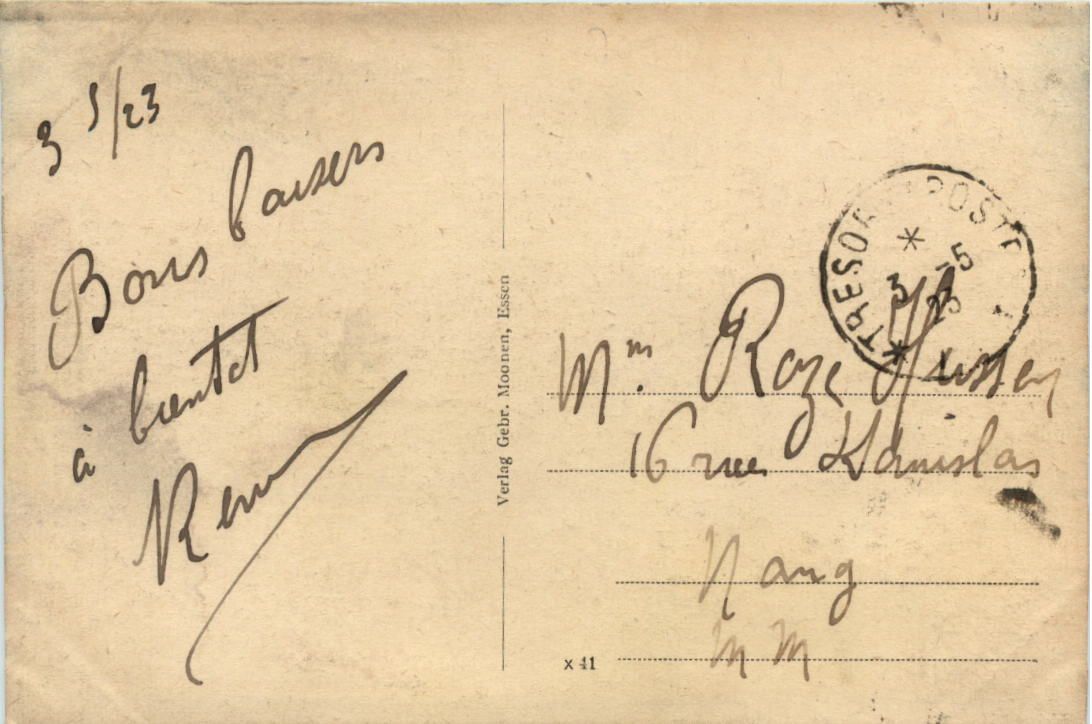 3 5/23
Bons baisers
à bientot
Verlag Gebr. Moonen, Essen
TRESOR POSTES
* 3 -5
23 *
Mm. Roze
16 rue Stanislas
Nancy
M M
x 41